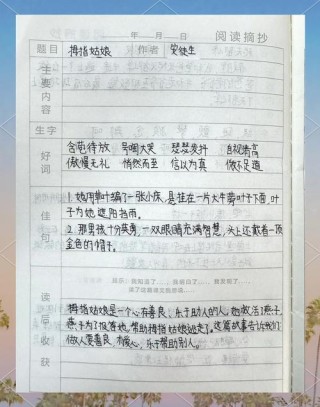 年 月 日 阅读摘抄
题目 拇指姑娘 作者 安徒生
主要内容
生字
好词 含苞待放 号啕大哭 瑟瑟发抖 自视清高
傲慢无礼 悄然而至 信以为真 微不足道
佳句 1.她用草叶编了一张小床,悬挂在一片大牛蒡叶子下面,叶
子为她遮阳挡雨。
2.那男孩十分英勇,一双眼睛充满智慧,头上还戴着一顶
金色的帽子。
读后收获 拇指姑娘是一个心肠善良、乐于助人的人,她救活了燕子,
燕子为了报答她,帮助拇指姑娘逃走了。这篇故事告诉我们
做人要善良、有爱心、乐于帮助别人。